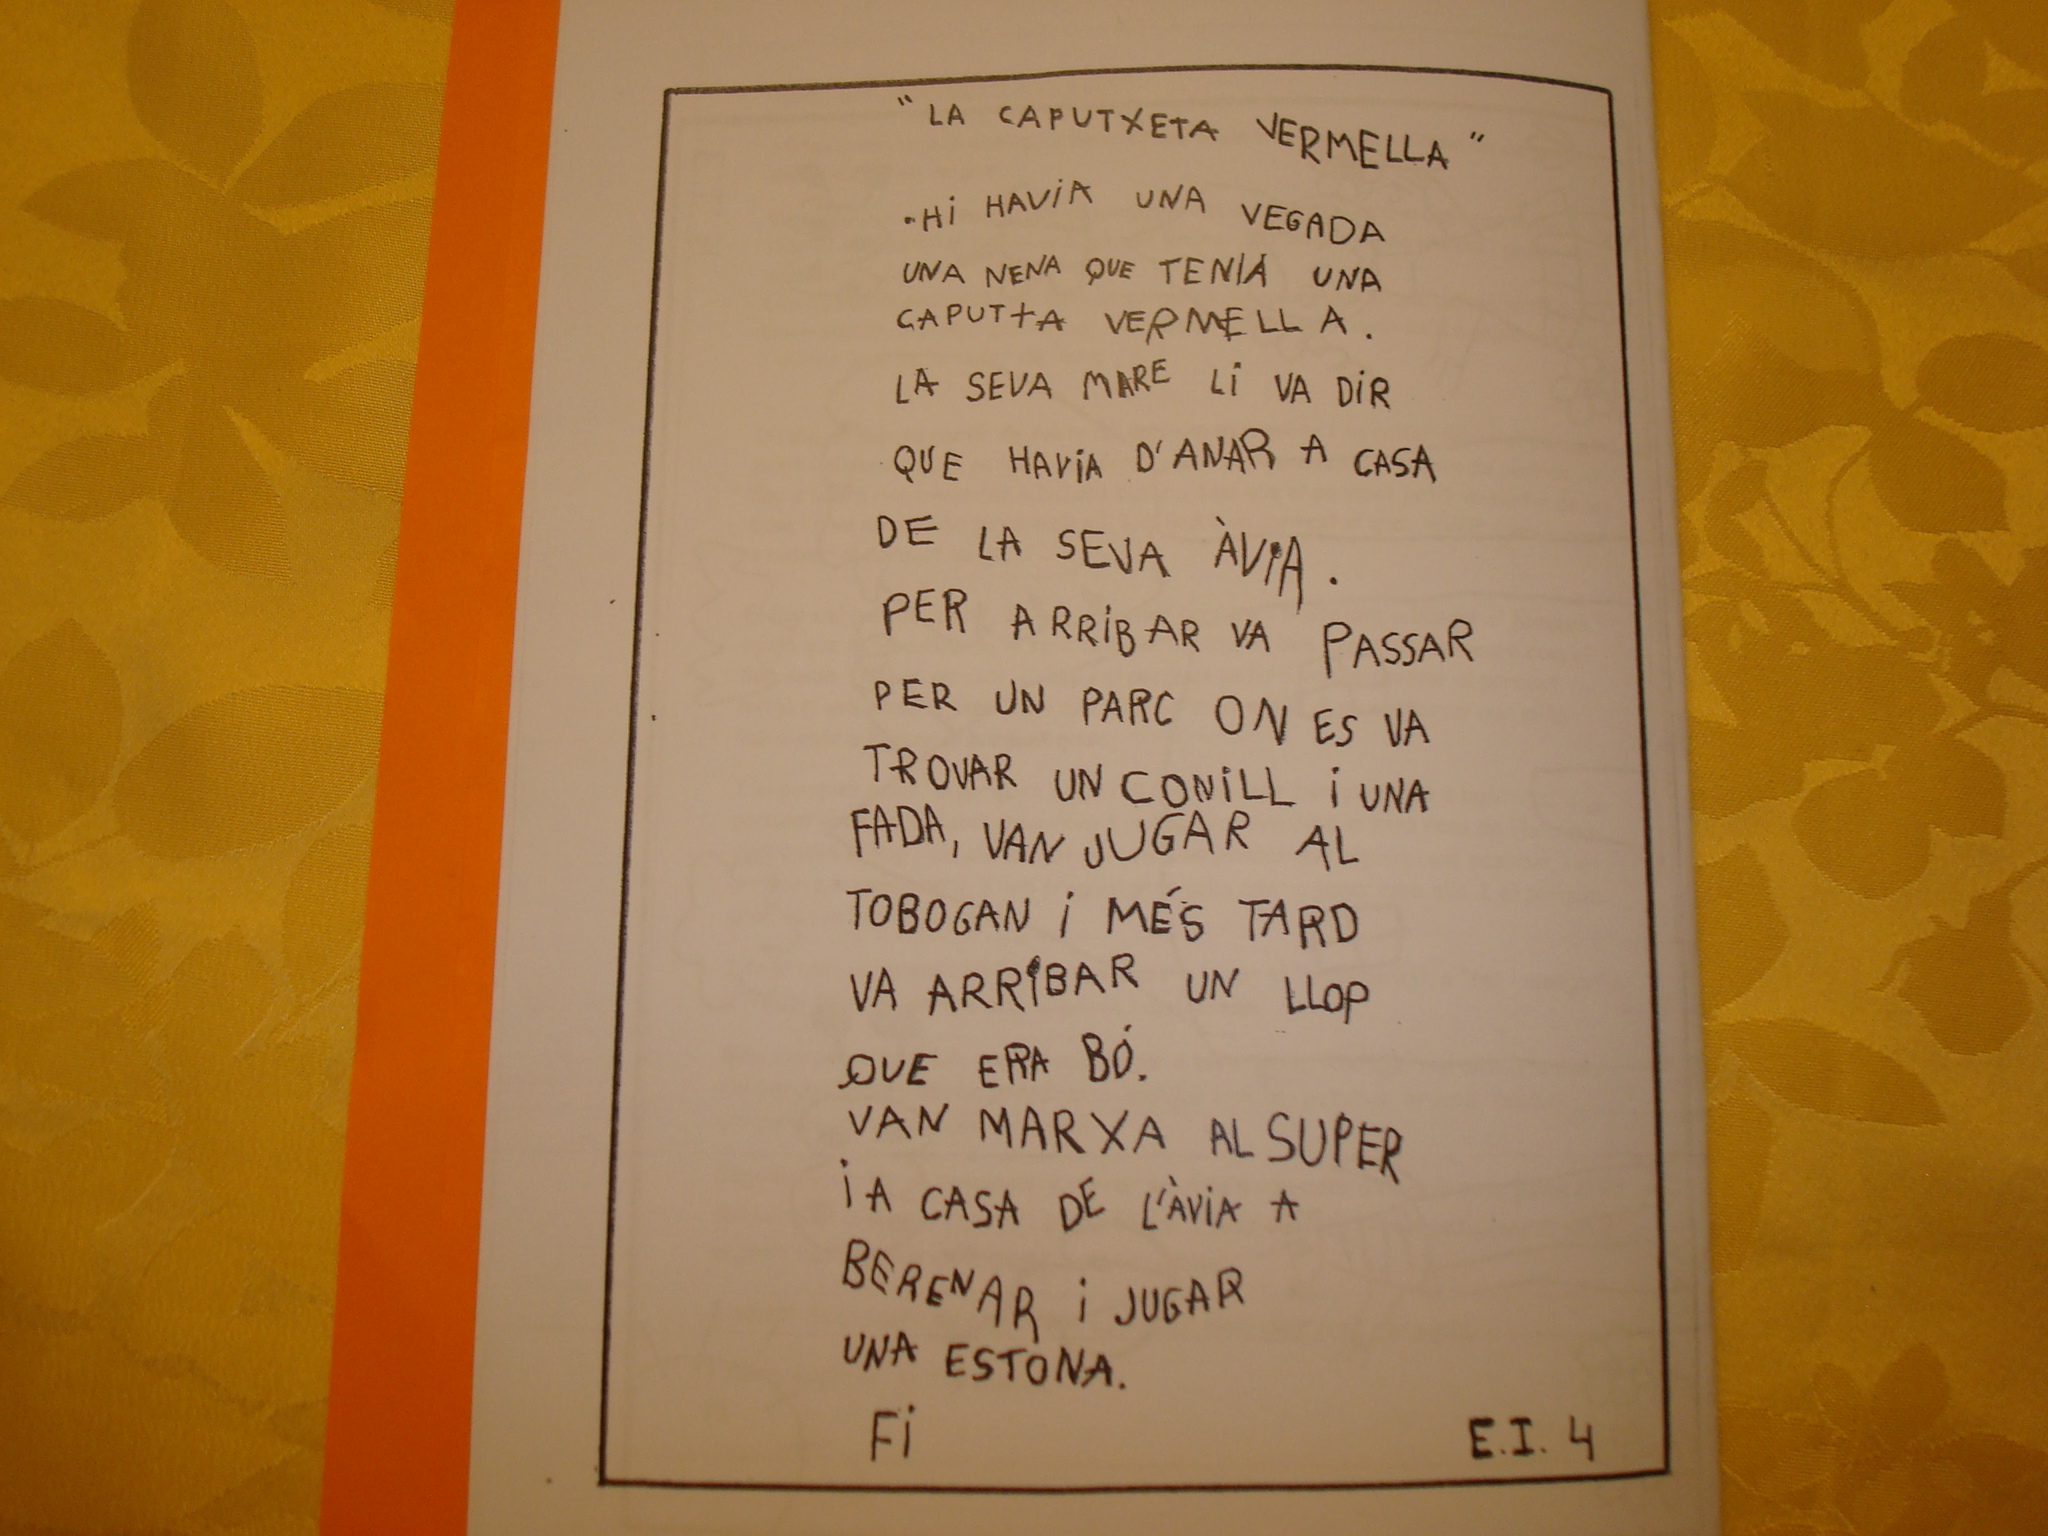 "LA CAPUTXETA VERMELLA"
.Hi HAViA UNA VEGADA
UNA NENA QUE TENIA UNA
CAPUTXA VERMELLA.
LA SEVA MARE Li VA DiR
QUE HAViA D'ANAR A CASA
DE LA SEVA ÀViA.
PER ARRiBAR VA PASSAR
PER UN PARC ON ES VA
TROVAR UN CONiLL i UNA
FADA, VAN JUGAR AL
TOBOGAN i MÉS TARD
VA ARRiBAR UN LLOP
QUE ERA BÓ.
VAN MARXA AL SUPER
i A CASA DE L'ÀViA A
BERENAR i JUGAR
UNA ESTONA.
Fi
E.I. 4